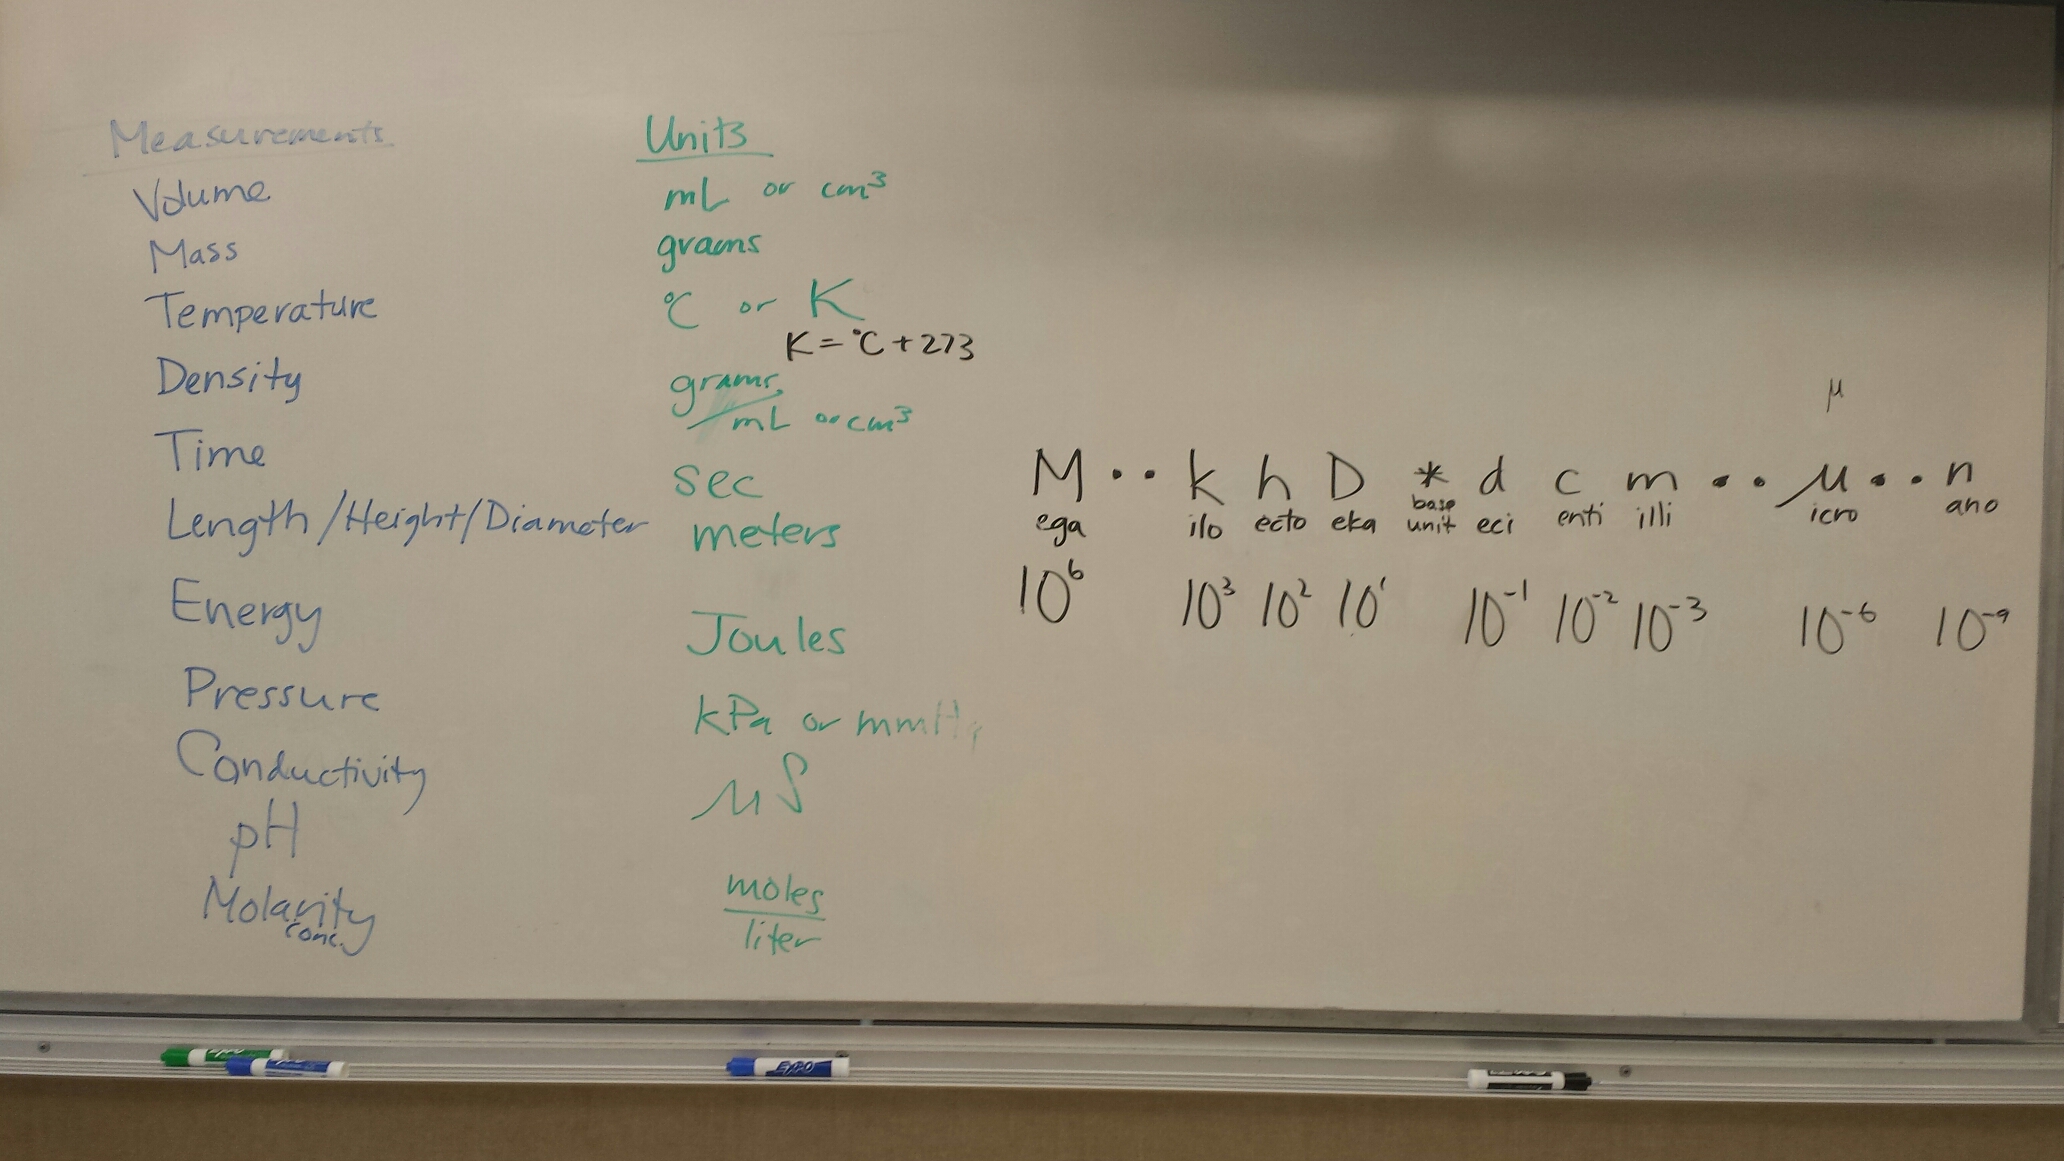 Measurements Units
Volume mL or cm³
Mass grams
Temperature °C or K
K = °C + 273
Density grams / mL or cm³
Time sec
Length/Height/Diameter meters
Energy Joules
Pressure kPa or mmHg
Conductivity μS
pH
Molarity moles / liter
conc.
μ
M • • k h D * d c m • • μ • • n
ega ilo ecto eka base unit eci enti illi icro ano
10⁶ 10³ 10² 10¹ 10⁻¹ 10⁻² 10⁻³ 10⁻⁶ 10⁻⁹
EXPO